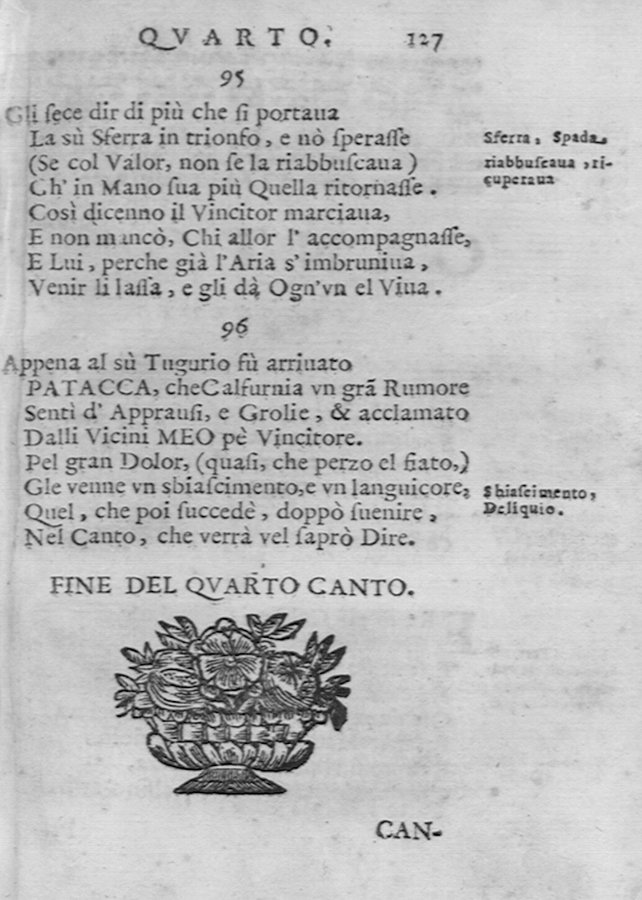 QVARTO. 127
95
Gli fece dir di più che si portaua
La sù Sferra in trionfo, e nò sperasse
(Se col Valor, non se la riabbuscaua)
Ch' in Mano sua più Quella ritornasse.
Così dicenno il Vincitor marciaua,
E non mancò, Chi allor l' accompagnasse,
E Lui, perche già l'Aria s' imbruniua,
Venir li lassa, e gli dà Ogn'vn el Viua.
Sferra, Spada.
riabbuscaua, ri-
cuperaua
96
Appena al sù Tugurio fù arriuato
PATACCA, cheCalfurnia vn grã Rumore
Sentì d' Apprausi, e Grolie, & acclamato
Dalli Vicini MEO pè Vincitore.
Pel gran Dolor, (quasi, che perzo el fiato,)
Gle venne vn sbiascimento, e vn languicore,
Quel, che poi succedè, doppò suenire,
Nel Canto, che verrà vel saprò Dire.
Sbiascimento,
Deliquio.
FINE DEL QVARTO CANTO.
CAN-